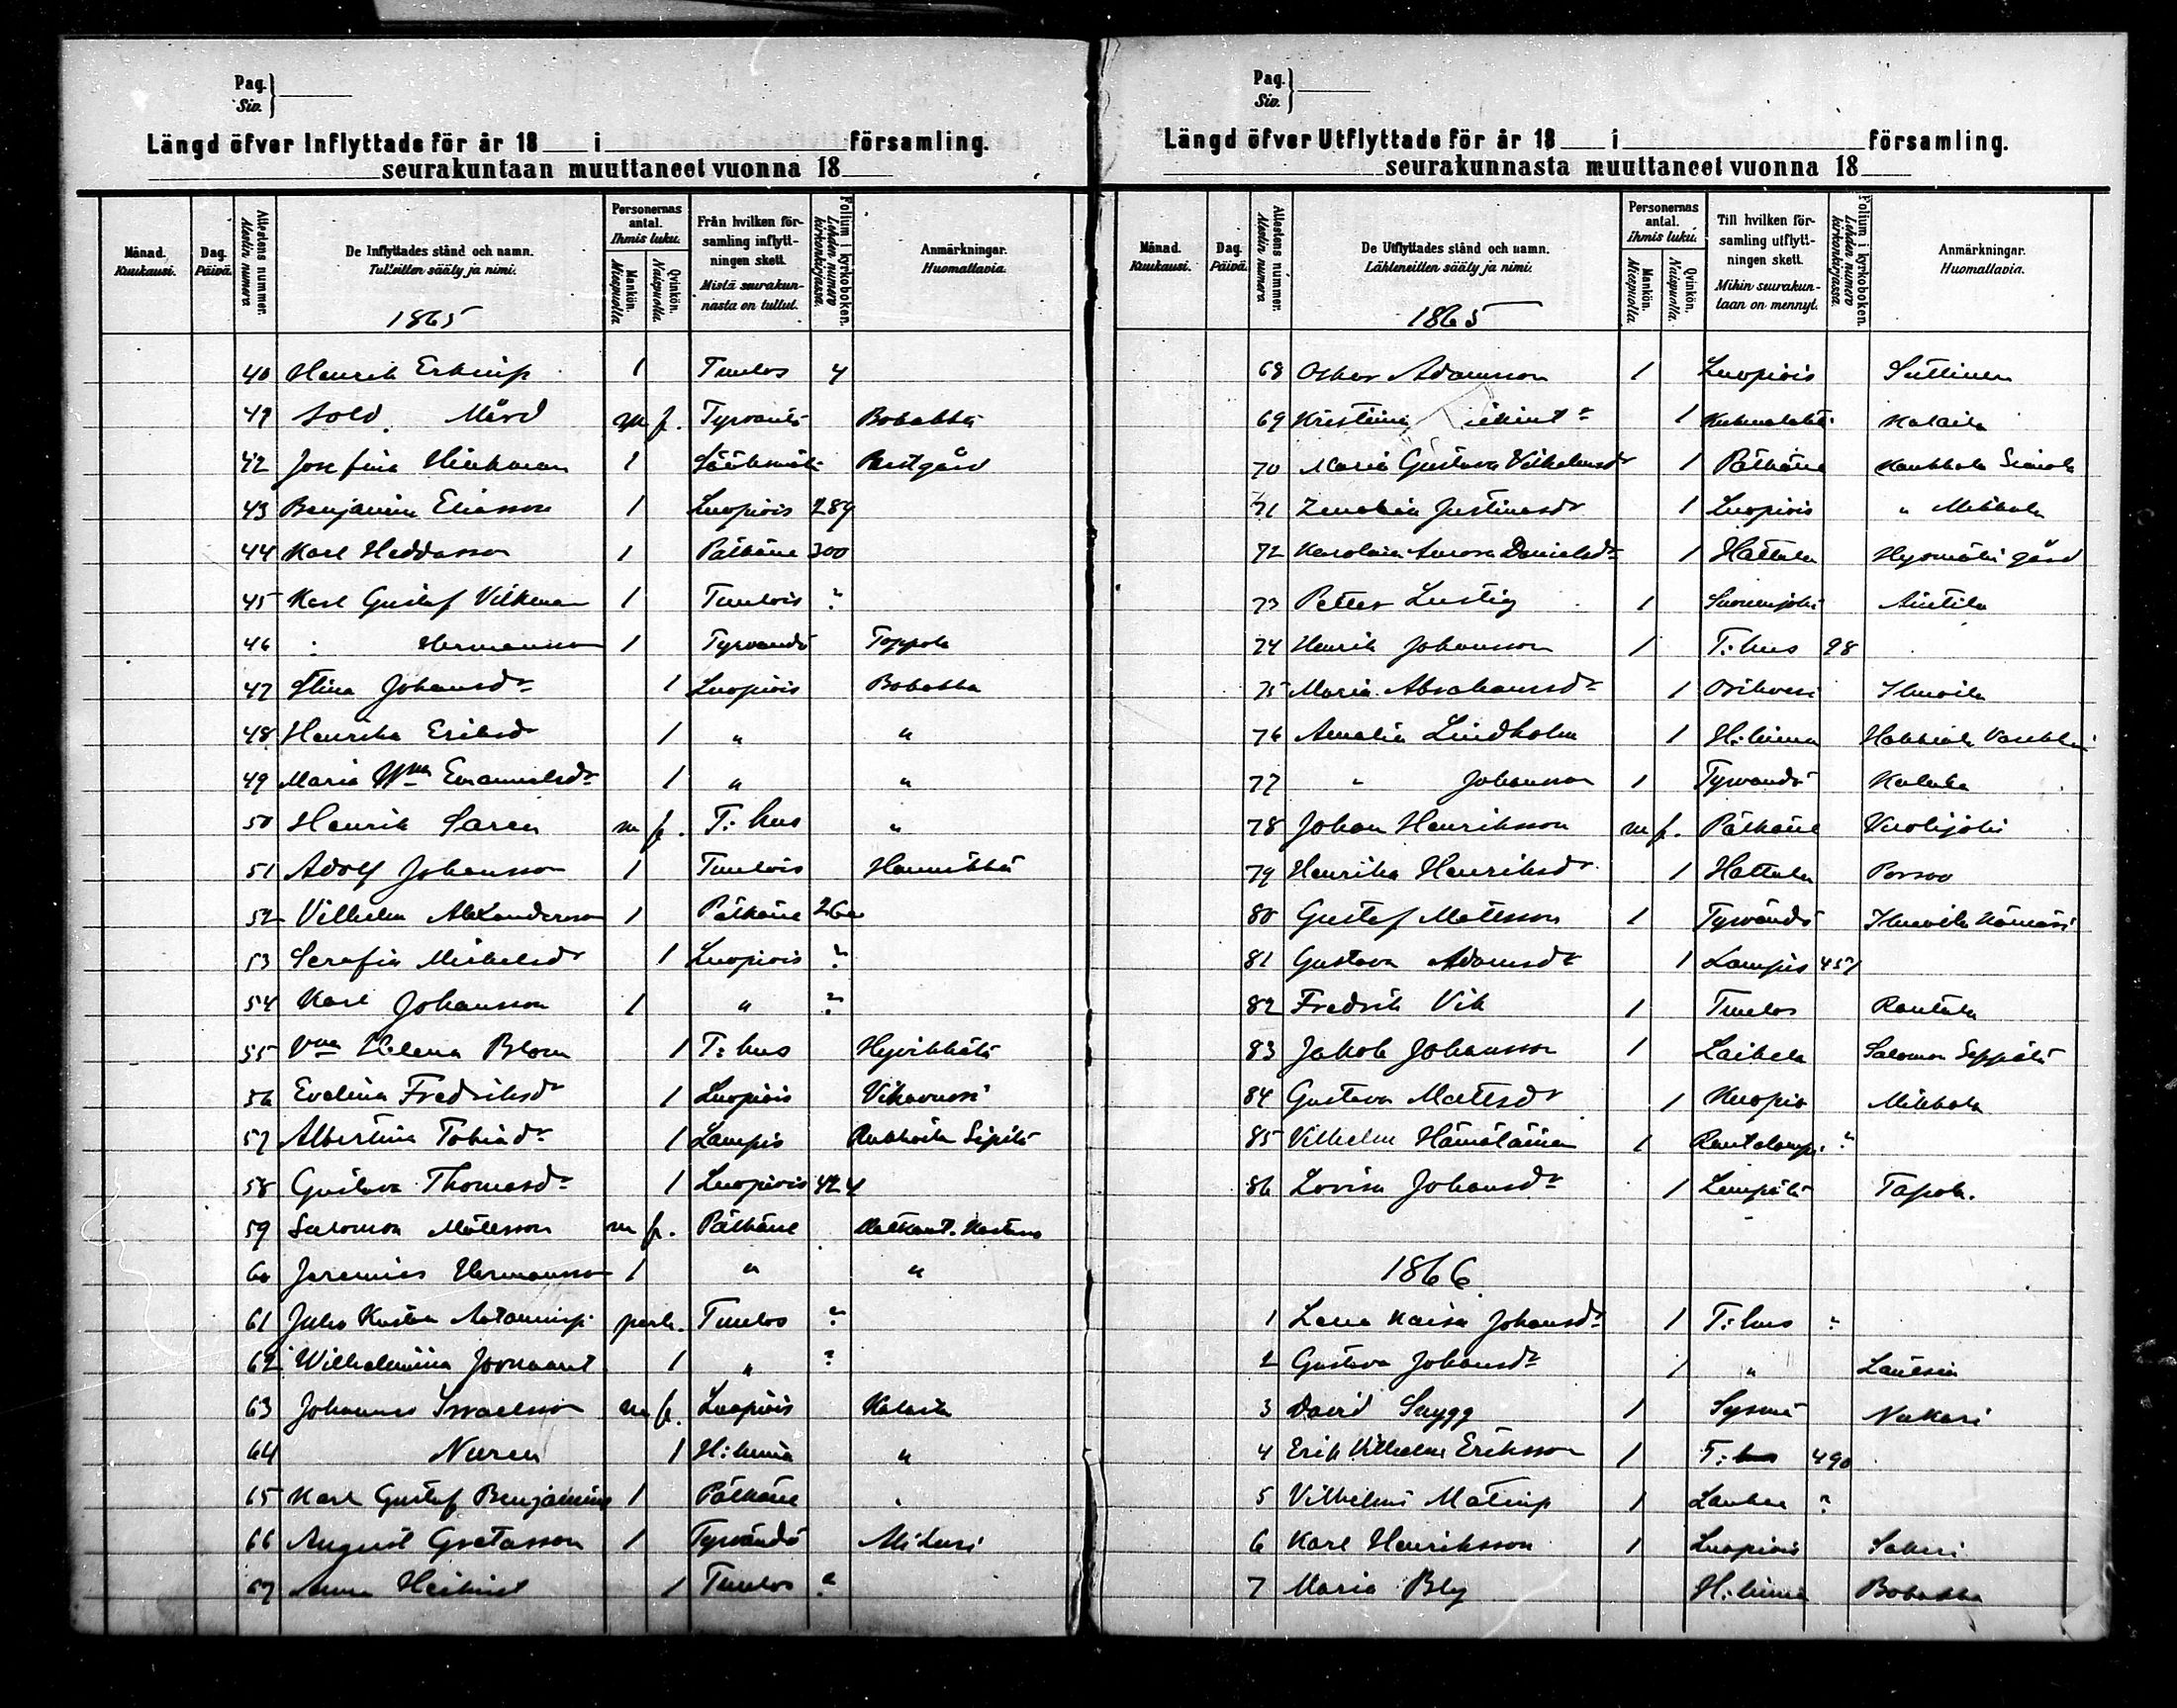 Pag.
Siv.
Längd öfver Inflyttade för år 18 i församling.
seurakuntaan muuttaneet vuonna 18
Månad. Kuukausi.
Dag. Päivä.
Attestens nummer. Alestin numero
De Inflyttades stånd och namn.
Tulleitten sääty ja nimi.
Personernas antal. Ihmis luku.
Mankön. Miespuolia
Qvinkön. Naispuolia.
Från hvilken församling inflyttningen skett.
Mistä seurakunnasta on tullut.
Folium i kyrkoboken. Lehden numero kirkonkirjassa.
Anmärkningar. Huomattavia.
1865
40 Henrik Erkinp. 1 Tuulos 4
Sold. Mård m f. Tyrväntö Bobakka
42 Josefina Hinkman 1 Sääksmäki Prestgård
43 Benjamin Eliasson 1 Luopiois 289
44 Karl Heddasson 1 Pälkäne 300
45 Karl Gustaf Vilkman 1 Tuulois ?
46 " Hermansson 1 Tyrvändö Toppola
47 Stina Johansdr 1 Luopiois Bobakka
48 Henrika Eriksdr 1 " "
49 Maria Wma Emanuelsdr 1 " "
50 Henrik Saren m f. T:hus "
51 Adolf Johansson 1 Tuulois
52 Vilhelm Alexandersson 1 Pälkäne 260
53 Serafia Mickelsdr 1 Luopiois ?
54 Karl Johansson 1 " ?
55 Vma Helena Blom 1 T:hus Hyvikkälä
56 Evelina Fredriksdr 1 Luopiois Vihavuosi
57 Albertina Tobiasdr 1 Lampis Sipilä
58 Gustava Thomasdr 1 Luopiois 424
59 Salomon Mattsson m f. Pälkäne
60 Jeremias Hermansson 1 " "
61 Juho Kustaa perh. Tuulos ?
62 Wilhelmiina 1 " ?
63 Johannes Israelsson m f. Luopiois Kalaila
64 Nuren 1 H:linna "
65 Karl Gustaf Benjamins 1 Pälkäne "
66 August Gretasson 1 Tyrvändö
67 Anna Heikint 1 Tuulos ?
Pag.
Siv.
Längd öfver Utflyttade för år 18 i församling.
seurakunnasta muuttaneet vuonna 18
Månad. Kuukausi.
Dag. Päivä.
Attestens nummer. Alestin numero
De Utflyttades stånd och namn.
Lähteneitten sääty ja nimi.
Personernas antal. Ihmis luku.
Mankön. Miespuolia
Qvinkön. Naispuolia.
Till hvilken församling utflyttningen skett.
Mihin seurakuntaan on mennyt.
Folium i kyrkoboken. Lehden numero kirkonkirjassa.
Anmärkningar. Huomattavia.
1865
68 Oskar Adamsson 1 Luopiois
69 Kristiina 1 Kuhmalahti Kalaila
70 Maria Gustava Vilhelmsdr 1 Pälkäne
71 Zenobia Justinasdr 1 Luopiois " Mikkola
72 Karolina Aurora Danielsdr 1 Hattula gård
73 Petter Lustig 1 Suoniejoki Anttila
74 Henrik Johansson 1 T:hus 98
75 Maria Abrahamsdr 1 Orihvesi Ilmoila
76 Amalia Lindholm 1 H:linna
77 " Johansson 1 Tyrvändö
78 Johan Henriksson m f. Pälkäne Vuohijoki
79 Henrika Henriksdr 1 Hattula Porsoo
80 Gustaf Mattsson 1 Tyrvändö Ilmoila
81 Gustava Adamsdr 1 Lampis 457
82 Fredrik Vik 1 Tuulos Rantala
83 Jakob Johansson 1 Laihela Salomon Seppälä
84 Gustava Mattsdr 1 Kuopio Mikkola
85 Vilhelm Hämäläinen 1 Rautalampi ?
86 Lovisa Johansdr 1 Lempälä Tapola.
1866
1 Lena Kaisa Johansdr 1 T:hus ?
2 Gustava Johansdr 1 " Lautsia
3 David Snygg 1 Sysmä Nukari
4 Erik Vilhelm Eriksson 1 T:hus 490
5 Vilhelmi Matinp 1 ?
6 Karl Henriksson 1 Luopiois Sakari
7 Maria Bly H:linna Bobakka